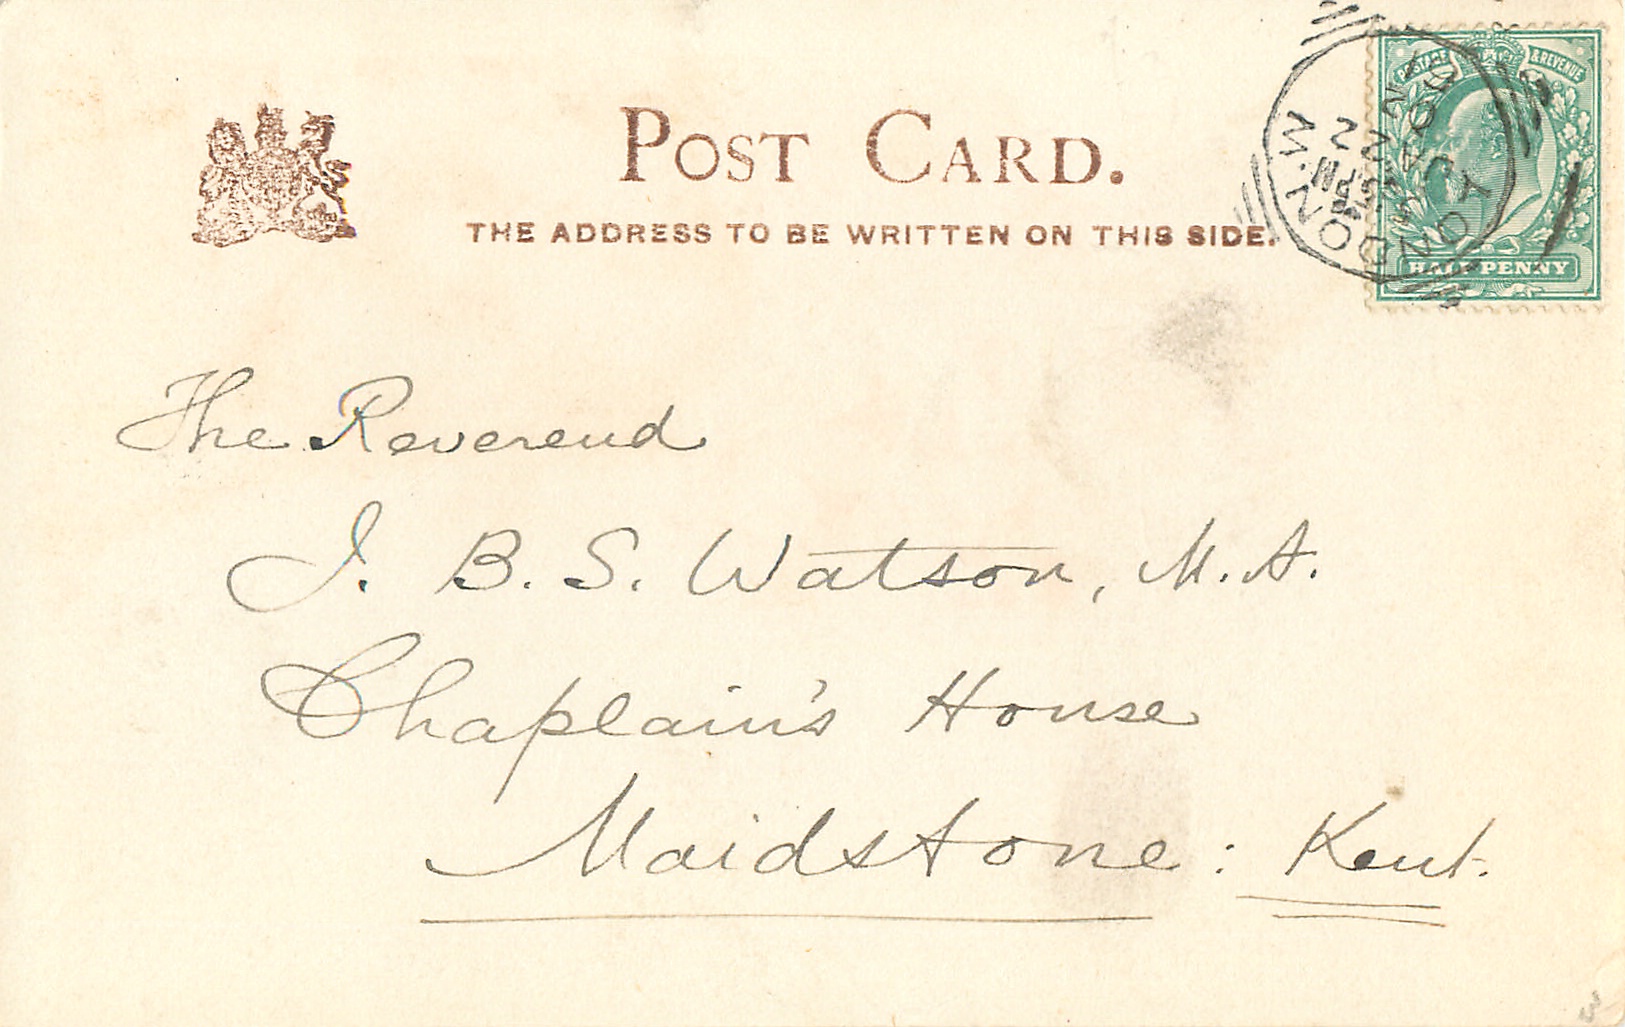 POST CARD.
THE ADDRESS TO BE WRITTEN ON THIS SIDE.
POSTAGE & REVENUE
HALF PENNY
LONDON. W
The Reverend
J. B. S. Watson, M.A.
Chaplain's House
Maidstone: Kent.